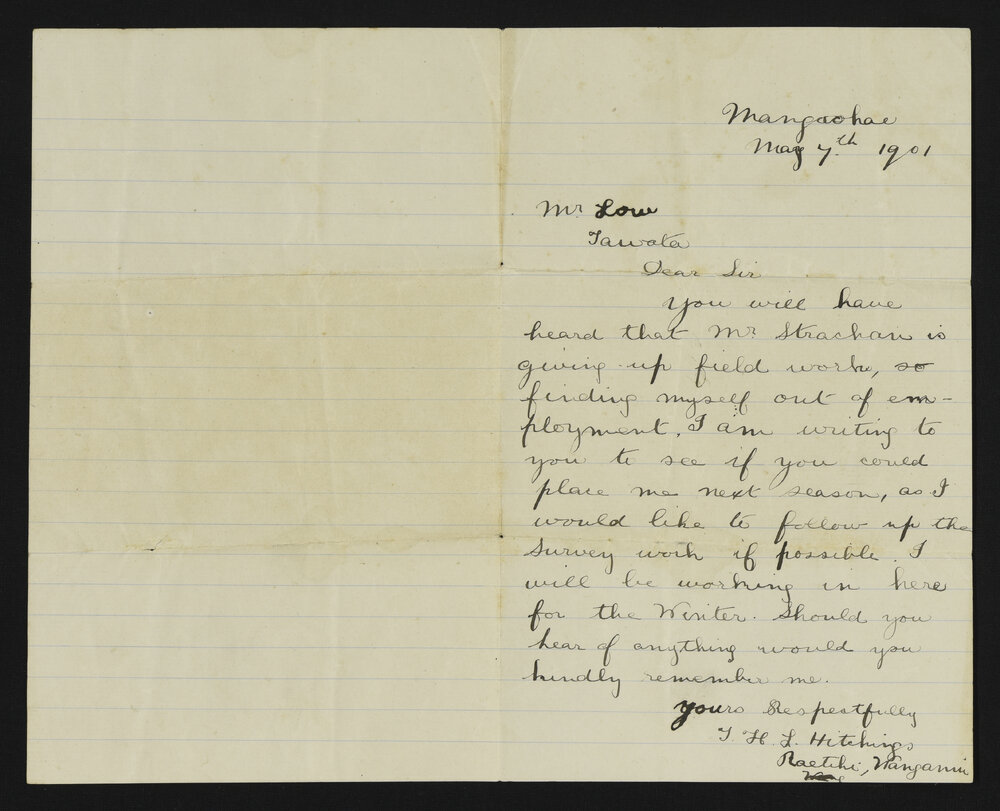 Mangaohae
May 7th 1901
Mr Low
Tawata
Dear Sir
You will have
heard that Mr Strachan is
giving up field work, so
finding myself out of em-
ployment, I am writing to
you to see if you could
place me next season, as I
would like to follow up the
Survey work if possible. I
will be working in here
for the Winter. Should you
hear of anything would you
kindly remember me.
Yours Respectfully
T. H. L. Hitchings
Raetihi, Wanganui